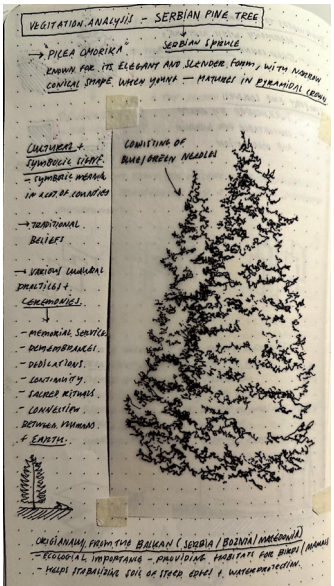 VEGITATION ANALYSIS - SERBIAN PINE TREE
→ "PICEA OMORIKA" SERBIAN SPRUCE
KNOWN FOR ITS ELEGANT AND SLENDER FORM, WITH NARROW
CONICAL SHAPE WHEN YOUNG - MATURES IN PYRAMIDAL CROWN
CULTURAL +
SYMBOLIC SIGNF.
- SYMBOLIC MEANING
IN A LOT OF COUNTIES
→ TRADITIONAL
BELIEFS
→ VARIOUS CULTURAL
PRACTICES +
CEREMONIES.
- MEMORIAL SERVICE
- REMEMBRANCES.
- DEDICATIONS.
- CONTINUITY.
- SACRED RITUALS
- CONNECTION
BETWEEN HUMANS
+ EARTH.
CONSISTING OF
BLUE/GREEN NEEDLES
ORIGIANALY FROM THE BALKAN (SERBIA/BOZNIA/MACEDONIA)
- ECOLOGICAL IMPORTANCE - PROVIDING HABITATS FOR BIRDS/MAMMALS
- HELPS STABALIZING SOIL ON STEEP EDGES + WATER PROTECTION.